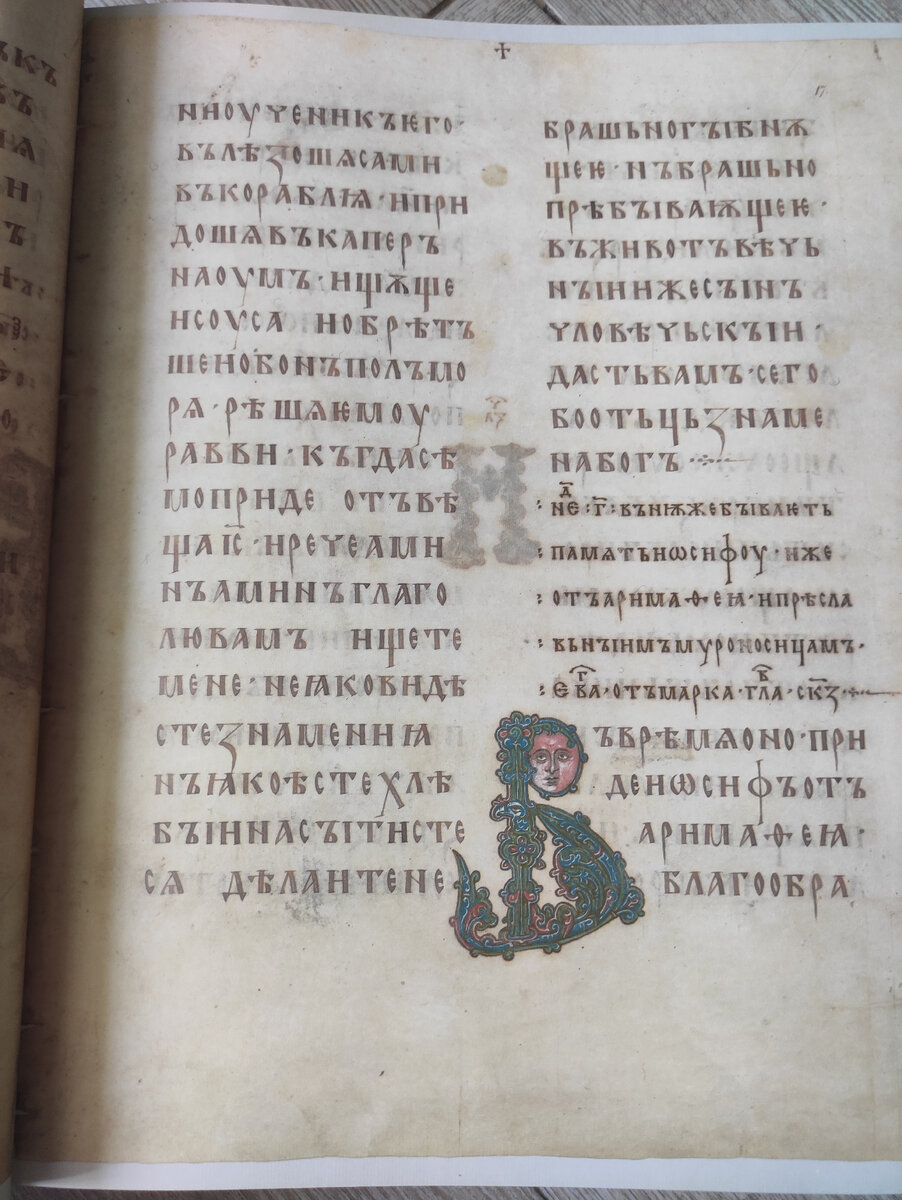 17
ни оученикъ его·
вълѣзошѧ сами
въ кораблѩ· и при
дошѧ въ каперъ
наоумъ· и щѫще
исоуса и обрѣтъ
ше и об онъ полъ мо
рꙗ· рѣшѧ ѥмоу
равви· къгда сѣ
мо приде отъвѣ
ща і҃с· и рече ами
нъ аминъ глаго
лю вамъ ищете
мене· не ꙗко видѣ
сте знамениꙗ
нъ ꙗко ѣсте хлѣ
бꙑ и насꙑтисте
сѧ дѣлаите не
брашьно гꙑбнѫ
щеѥ· нъ брашьно
прѣбꙑваѭщеѥ·
въ животъ вѣчь
нꙑи иже сꙑнъ
чловѣчьскꙑи·
дасть вамъ· сего
бо отьць знаме
на богъ
нед҃· г҃· въ нѭже бꙑваѥть
памѧть иѡсифоу· иже
отъ аримаѳеѩ· и прѣсла
вьнꙑимъ мѵроносицамъ·
ева г҃· отъ марка· гла в҃· ск҃з·
Въ врѣмѧ оно· при
де иѡсифъ отъ
аримаѳеѩ·
благообра